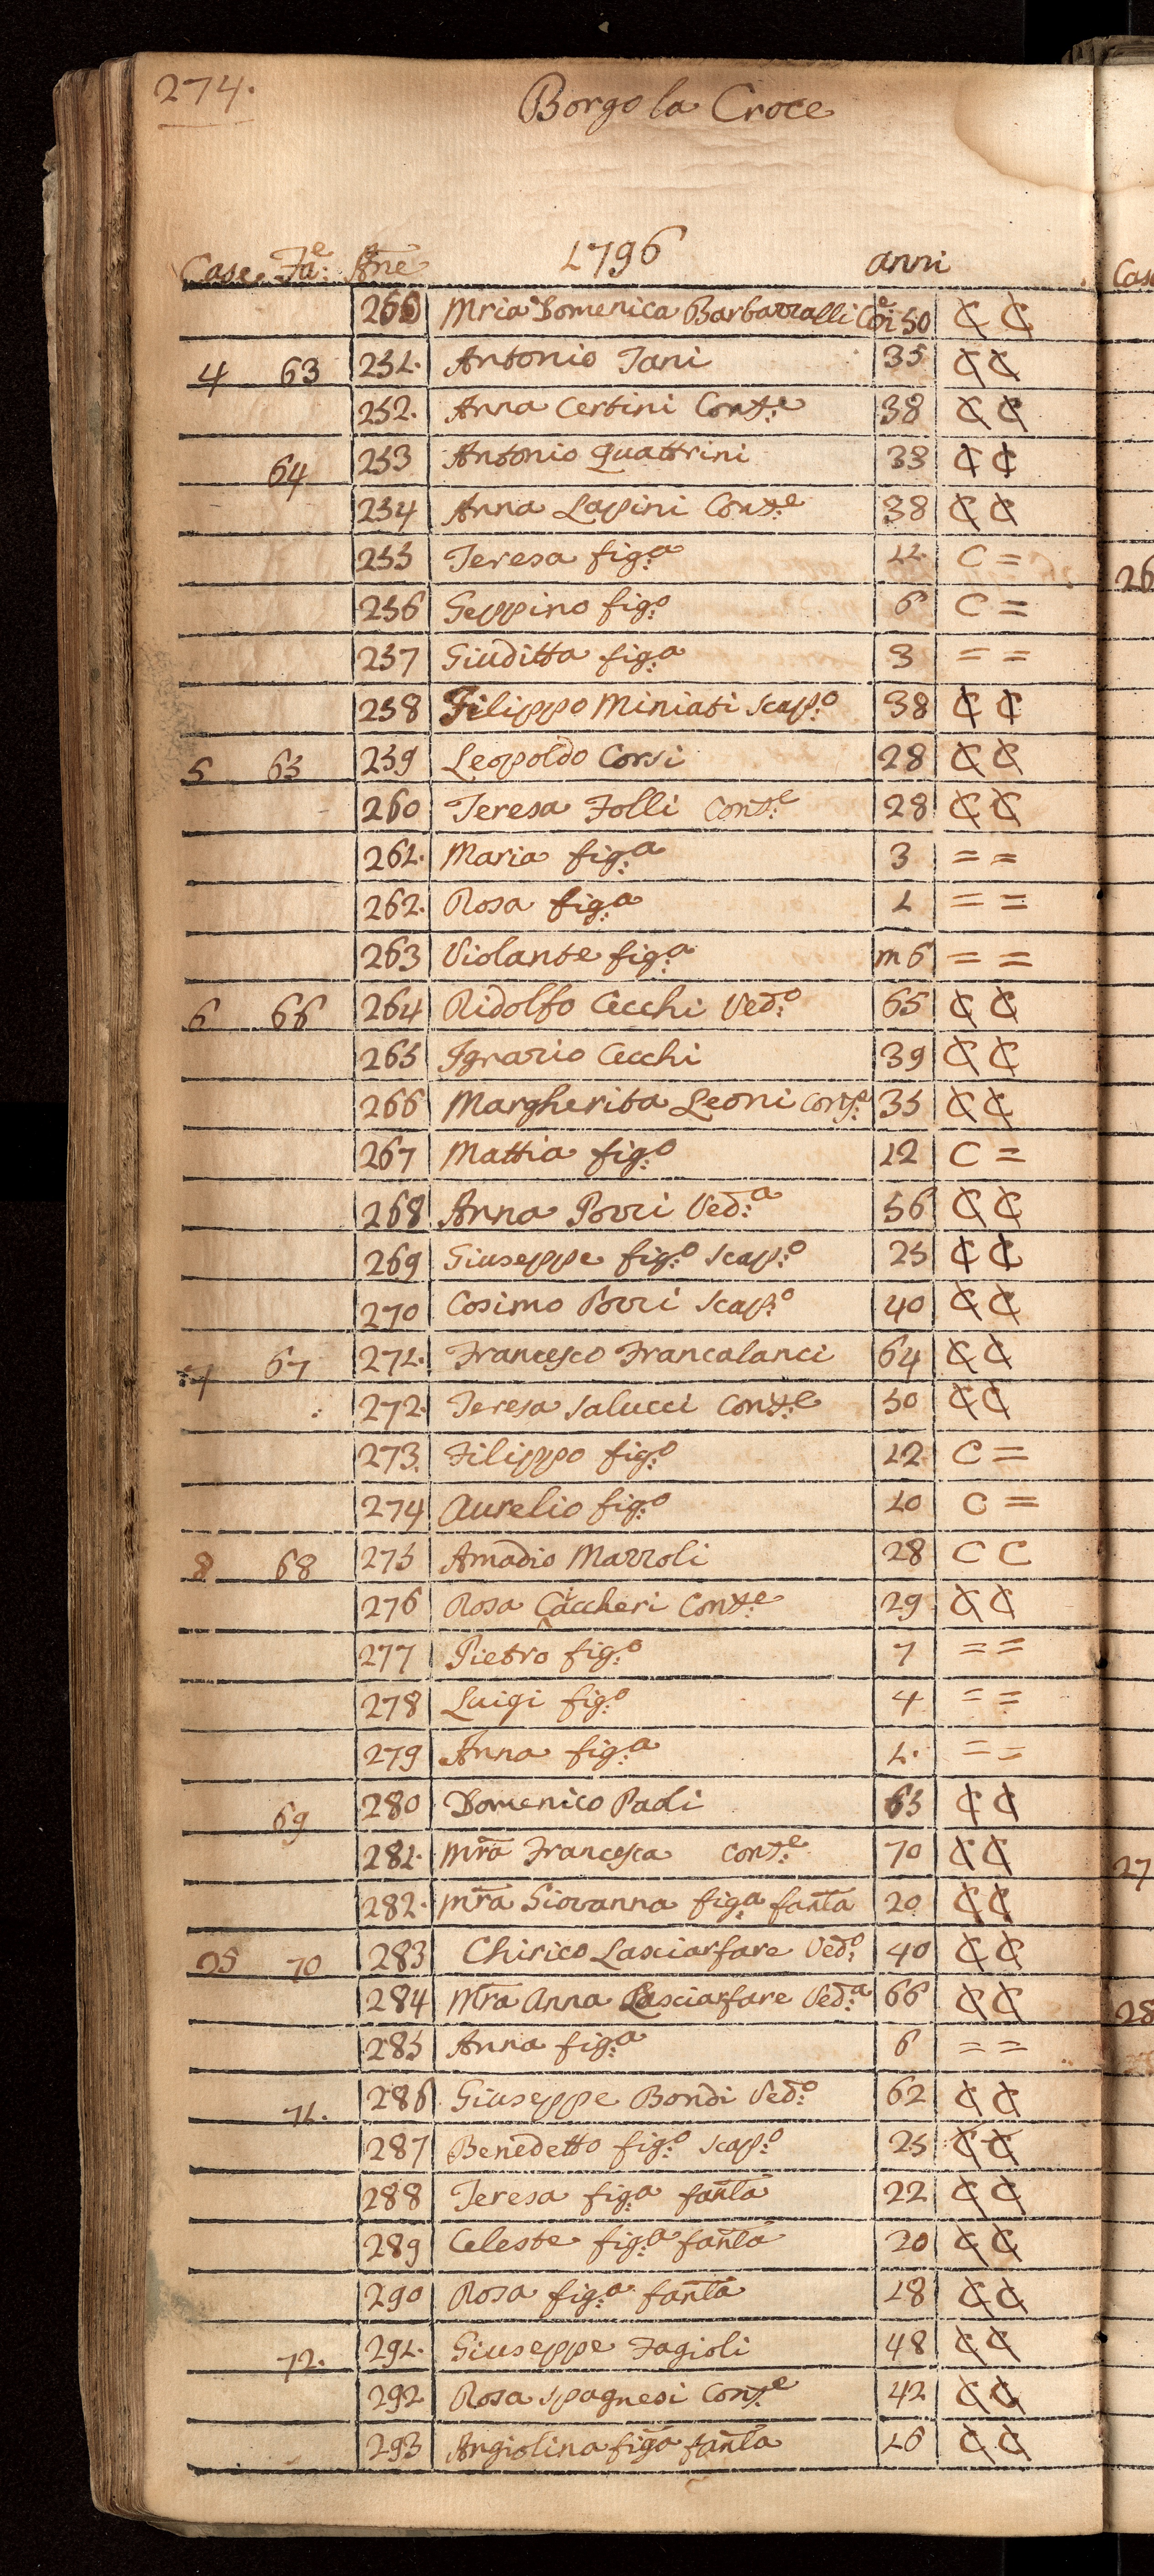 274.
Borgo la Croce
1796
Case Fa:e Ane anni
250 Mria Domenica Barbarralli Coi 50 C C
4 63 251. Antonio Tani 35 C C
252. Anna Certini Cons:e 38 C C
64 253 Antonio Quattrini 33 C C
254 Anna Lapini Cons:e 38 C C
255 Teresa fig:a 11 C =
256 Geppino fig:o 6 C =
257 Giuditta fig:a 3 = =
258 Filippo Miniati scap:o 38 C C
5 65 259 Leopoldo Corsi 28 C C
260 Teresa Folli Cons:e 28 C C
261. Maria fig:a 3 = =
262. Rosa fig:a 1 = =
263 Violante fig:a m 6 = =
6 66 264 Ridolfo Cecchi Ved:o 65 C C
265 Ignazio Cecchi 39 C C
266 Margherita Leoni Cons:e 35 C C
267 Mattia fig:o 12 C =
268 Anna Pozzi Ved:a 56 C C
269 Giuseppe fig:o scap:o 25 C C
270 Cosimo Pozzi scap:o 40 C C
7 67 271. Francesco Francalanci 64 C C
272. Teresa Salucci Cons:e 50 C C
273. Filippo fig:o 12 C =
274 Aurelio fig:o 10 C =
8 68 275 Amadio Mazzoli 28 C C
276 Rosa Caccheri Cons:e 29 C C
277 Pietro fig:o 7 = =
278 Luigi fig:o 4 = =
279 Anna fig:a 1. = =
69 280 Domenico Paoli 63 C C
281. Mra Francesca Cons:e 70 C C
282. Mra Giovanna fig:a fanla 20 C C
25 70 283 Chirico Lasciarfare Ved:o 40 C C
284 Mra Anna Lasciarfare Ved:a 66 C C
285 Anna fig:a 6 = =
71. 286 Giuseppe Bondi Ved:o 62 C C
287 Benedetto fig:o scap:o 25 C C
288 Teresa fig:a fanla 22 C C
289 Celeste fig:a fanla 20 C C
290 Rosa fig:a fanla 18 C C
72. 291. Giuseppe Fagioli 48 C C
292 Rosa Spagnesi Cons:e 42 C C
293 Angiolina figa fanla 16 C C
Cas
26
27
28